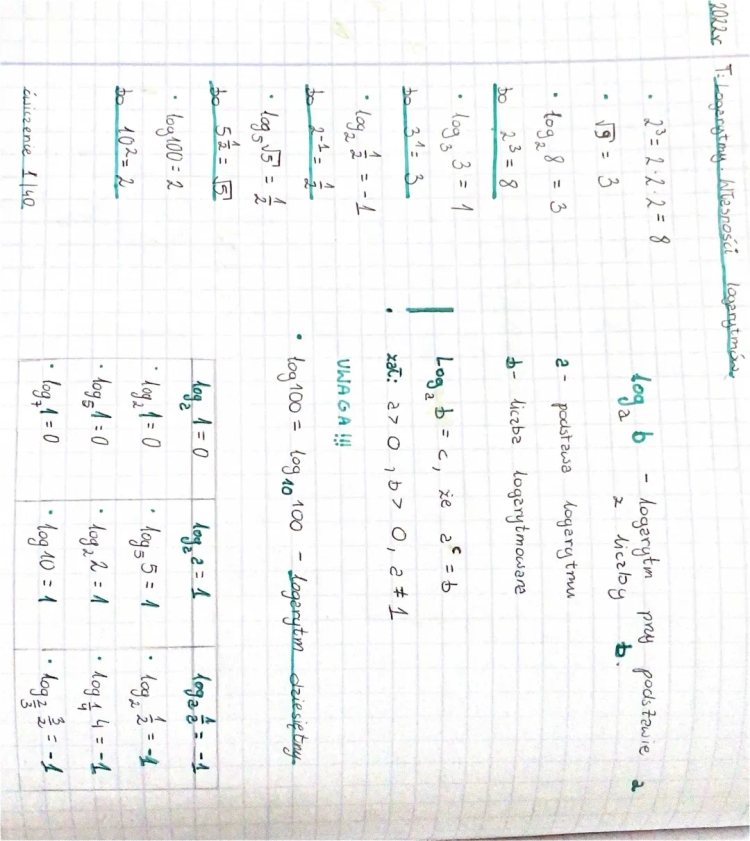 2022r. T: Logarytmy. Własności logarytmów.
• 2³ = 2·2·2 = 8
• √9 = 3
• log₂ 8 = 3
bo 2³ = 8
• log₃ 3 = 1
bo 3¹ = 3
• log₂ 1/2 = -1
bo 2⁻¹ = 1/2
• log₅ √5 = 1/2
bo 5^(1/2) = √5
• log100 = 2
bo 10² = 2
ćwiczenie 1/40
logₐ b - logarytm przy podstawie a
z liczby b.
a - podstawa logarytmu
b - liczba logarytmowana
Logₐ b = c, że aᶜ = b
zał: a > 0, b > 0, a ≠ 1
UWAGA!!!
• log100 = log₁₀ 100 - logarytm dziesiętny
logₐ 1 = 0 logₐ a = 1 logₐ 1/a = -1
• log₂ 1 = 0 • log₅ 5 = 1 • log₂ 1/2 = -1
• log₅ 1 = 0 • log₂ 2 = 1 • log_(1/4) 4 = -1
• log₇ 1 = 0 • log10 = 1 • log_(2/3) 3/2 = -1